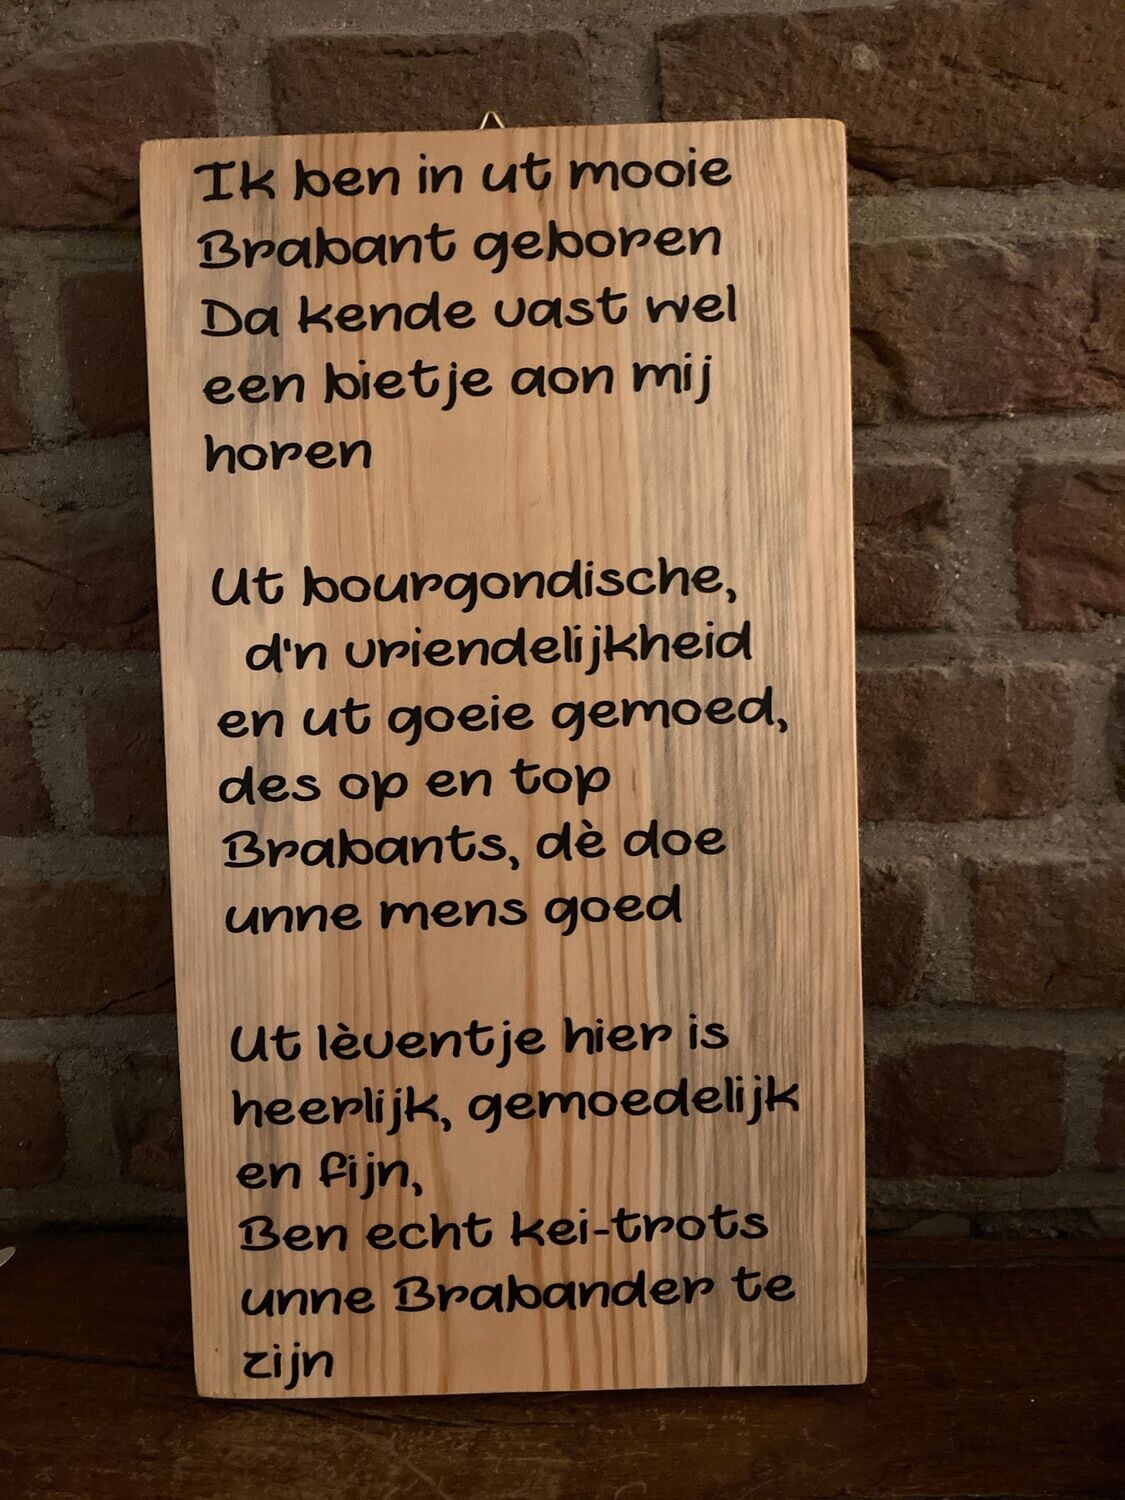 Ik ben in ut mooie
Brabant geboren
Da kende vast wel
een bietje aon mij
horen
Ut bourgondische,
d'n vriendelijkheid
en ut goeie gemoed,
des op en top
Brabants, dè doe
unne mens goed
Ut lèventje hier is
heerlijk, gemoedelijk
en fijn,
Ben echt kei-trots
unne Brabander te
zijn